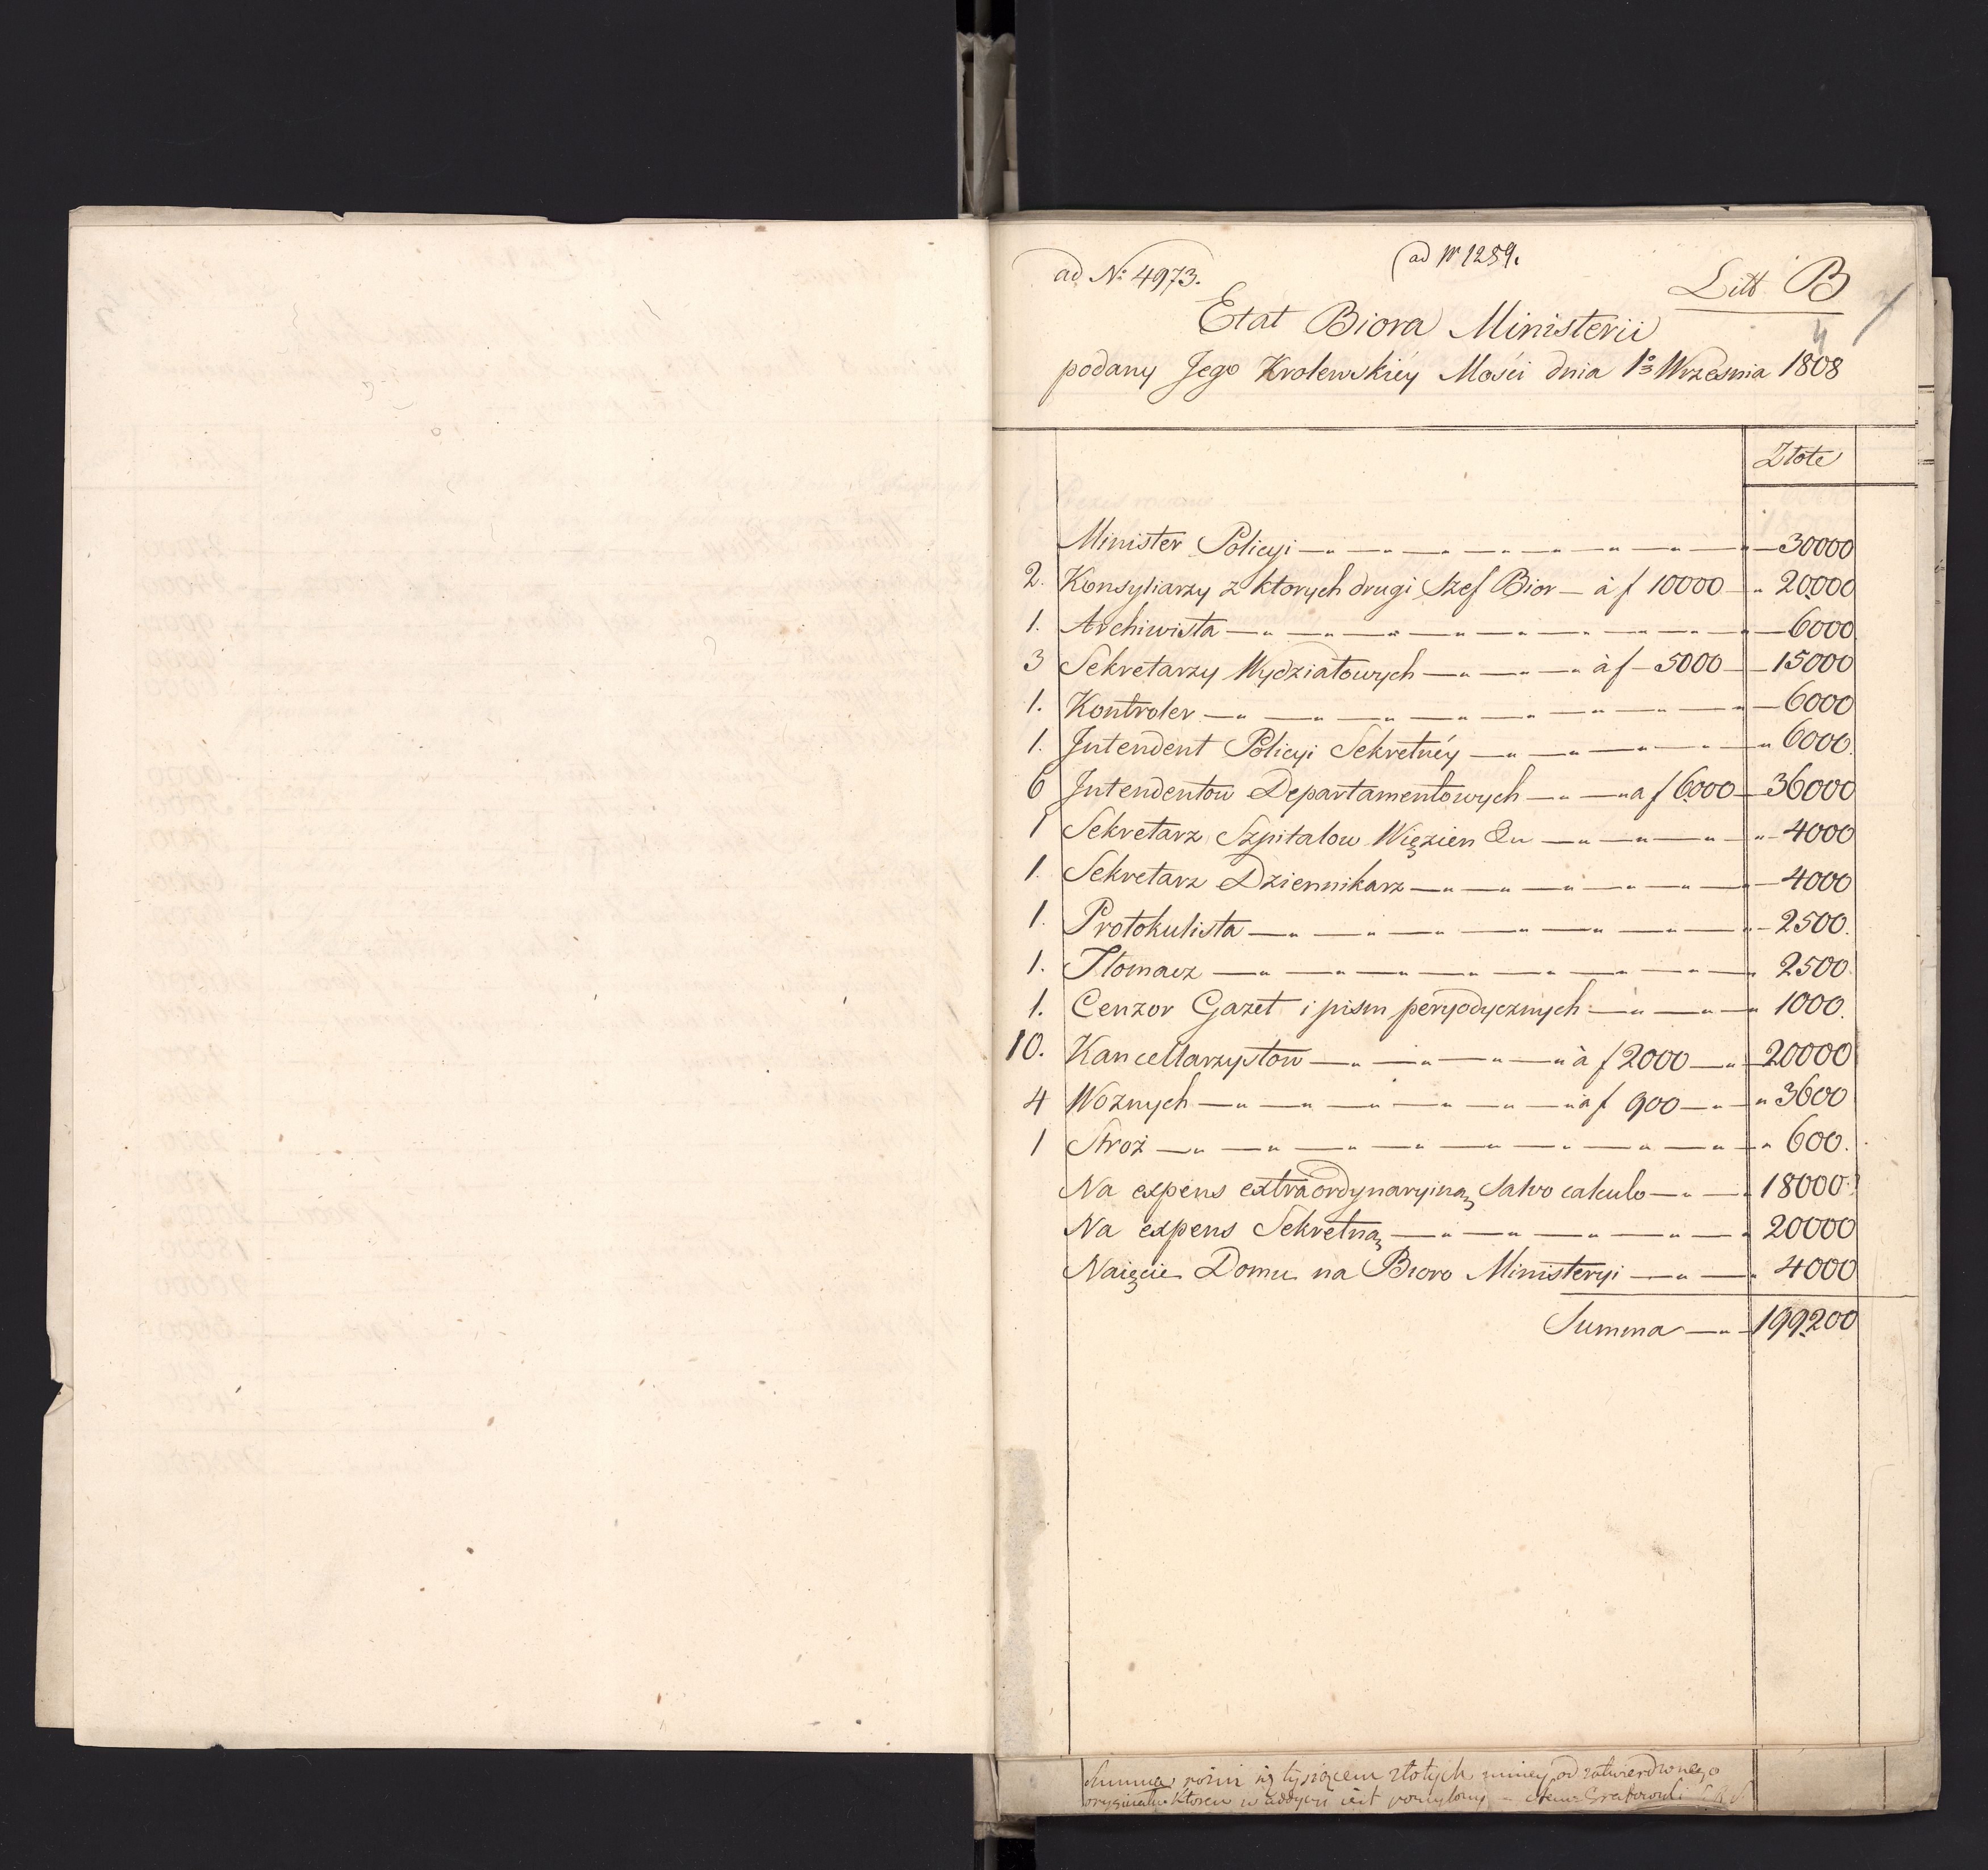 ad № 4973.
ad N 1259.
Litt B
4
Etat Biora Ministerii
podany Jego Krolewskiéy Mości dnia 1º Września 1808
Złote
Minister Policyi — 30000
2. Konsyliarzy z ktorych drugi Szef Bior — à f 10000 — 20000
1. Archiwista — 6000
3 Sekretarzy Wydziałowych — à f 5000 — 15000
1. Kontroler — 6000
1. Intendent Policyi Sekretnéy — 6000.
6 Intendentow Departamentowych — a f 6000 — 36000
1 Sekretarz Szpitalow Więzien &c — 4000
1. Sekretarz Dziennikarz — 4000
1. Protokulista — 2500.
1. Tłomacz — 2500.
1. Cenzor Gazet i pism peryodycznych — 1000.
10. Kancellarzystow — à f 2000 — 20000
4 Woznych — à f 900 — 3600
1 Stroż — 600.
Na expens extraordynaryiną Salvo calculo — 18000
Na expens Sekretną — 20000
Naięcie Domu na Bioro Ministeryi — 4000
Summa — 199200
Summa rożni się tysiącem złotych mniey od zatwierdzonego
oryginału ktoren w addycyi iest pomylony —